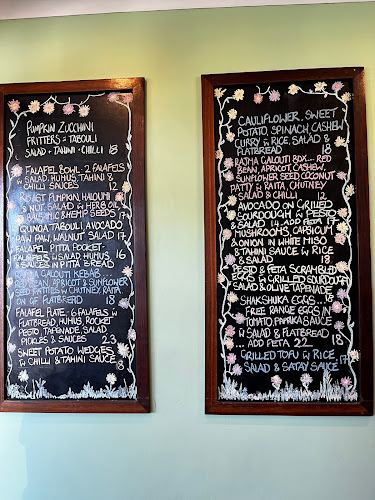 Pumpkin Zucchini
Fritters = Tabouli
Salad + Tahini + Chilli 18
Falafel Bowl. 2 Falafels
w Salad, Humus, Tahini &
Chilli Sauces 12
Roast Pumpkin, Haloumi
& Nut Salad w Herb Oil,
Balsamic & Hemp Seeds 17
Quinoa Tabouli, Avocado
Paw Paw, Walnut Salad 17
Falafel Pitta Pocket-
Falafels w Salad, Humus
& Sauces in Pitta Bread 16
Rajma Galouti Kebab...
Red Bean, Apricot & Sunflower
Seed Patties w Chutney, Raita
on GF Flatbread 18
Falafel Plate. 6 Falafels w
Flatbread, Humus, Rocket
Pesto, Tapenade, Salad,
Pickles & Sauces 23
Sweet Potato Wedges
w Chilli & Tahini Sauce 18
Cauliflower, Sweet
Potato, Spinach Cashew
Curry w Rice, Salad &
Flatbread 18
Rajma Galouti Box... Red
Bean, Apricot, Cashew,
Sunflower Seed Coconut
Patty w Raita, Chutney
Salad & Chilli 18
Avocado on Grilled
Sourdough w Pesto
& Salad 14 Add Feta 17
Mushrooms, Capsicum
& Onion in White Miso
& Tahini Sauce w Rice
& Salad 18
Pesto & Feta Scrambled
Eggs w Grilled Sourdough
Salad & Olive Tapenade 18
Shakshuka Eggs...
Free Range Eggs in
Tomato, Paprika Sauce
w Salad & Flatbread 18
... Add Feta 22
Grilled Tofu w Rice
Salad & Satay Sauce 17